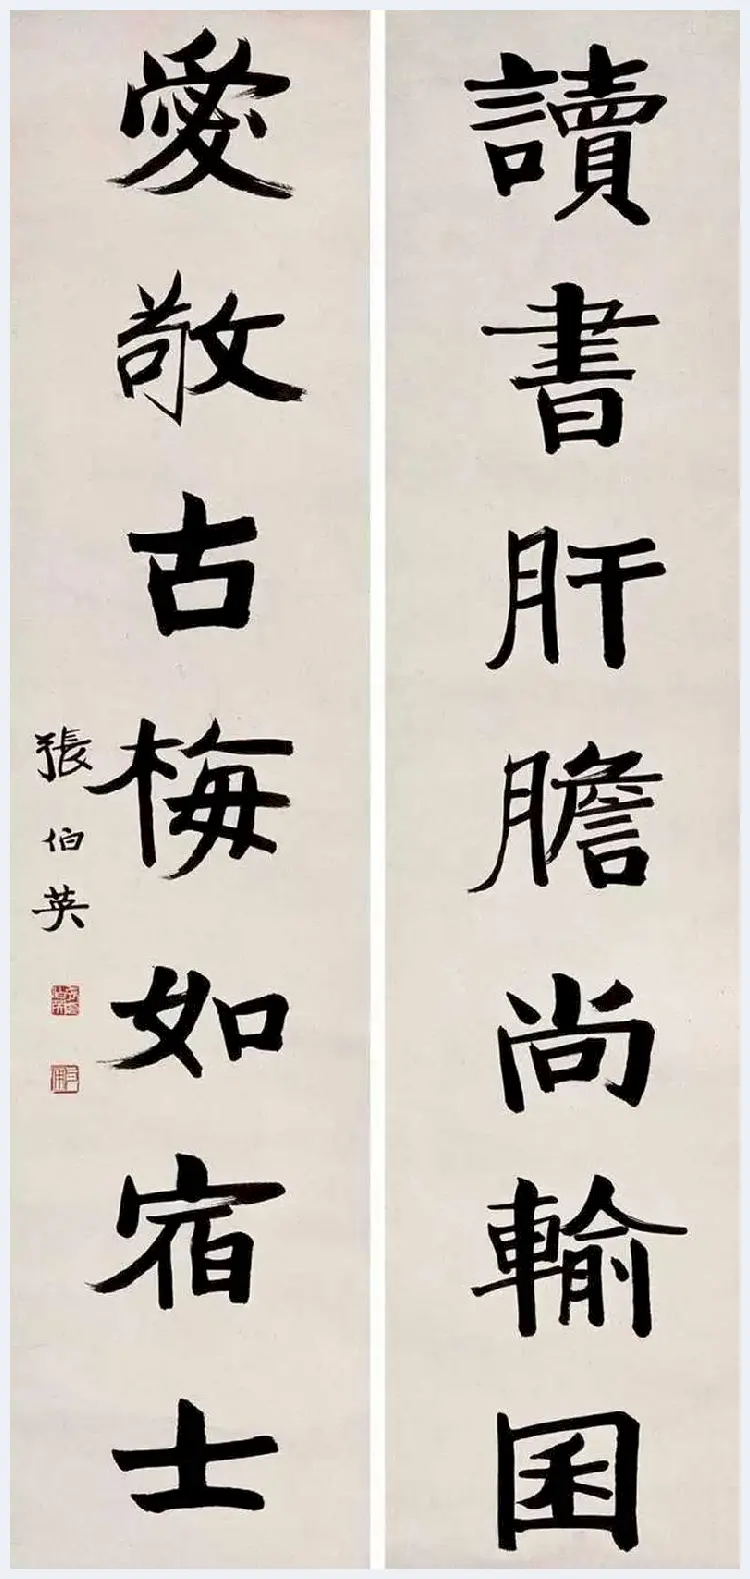 讀書肝膽尚輸囷
愛敬古梅如宿士
張伯英